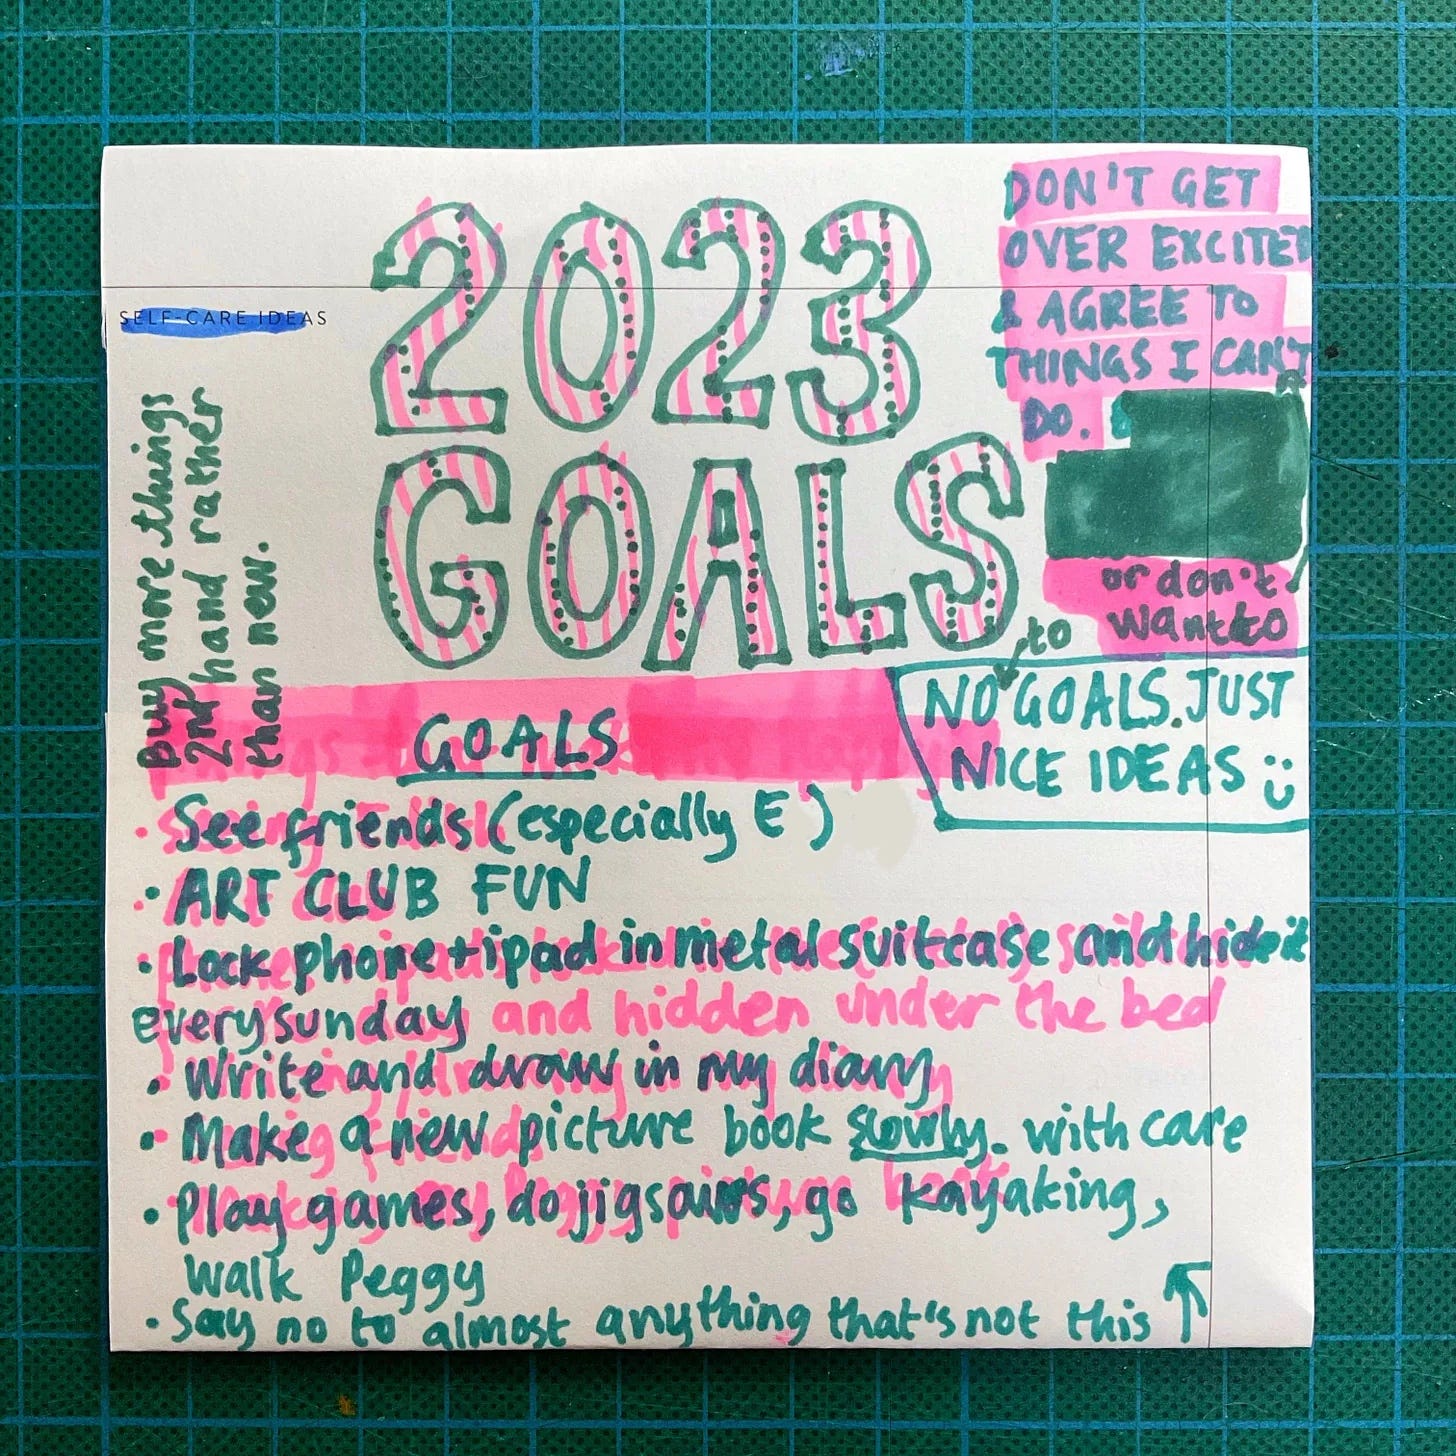 2023
GOALS
DON'T GET
OVER EXCITED
& AGREE TO
THINGS I CAN'T
DO.
or don't
want to
SELF-CARE IDEAS
Buy more things
2nd hand rather
than new.
to
NO GOALS. JUST
NICE IDEAS
GOALS
• See friends (especially E )
• ART CLUB FUN
• Lock phone + ipad in metal suitcase and hide it
every sunday and hidden under the bed
• Write and draw in my diary
• Make a new picture book slowly. with care
• Play games, do jigsaws, go kayaking,
Walk Peggy
• Say no to almost anything that's not this